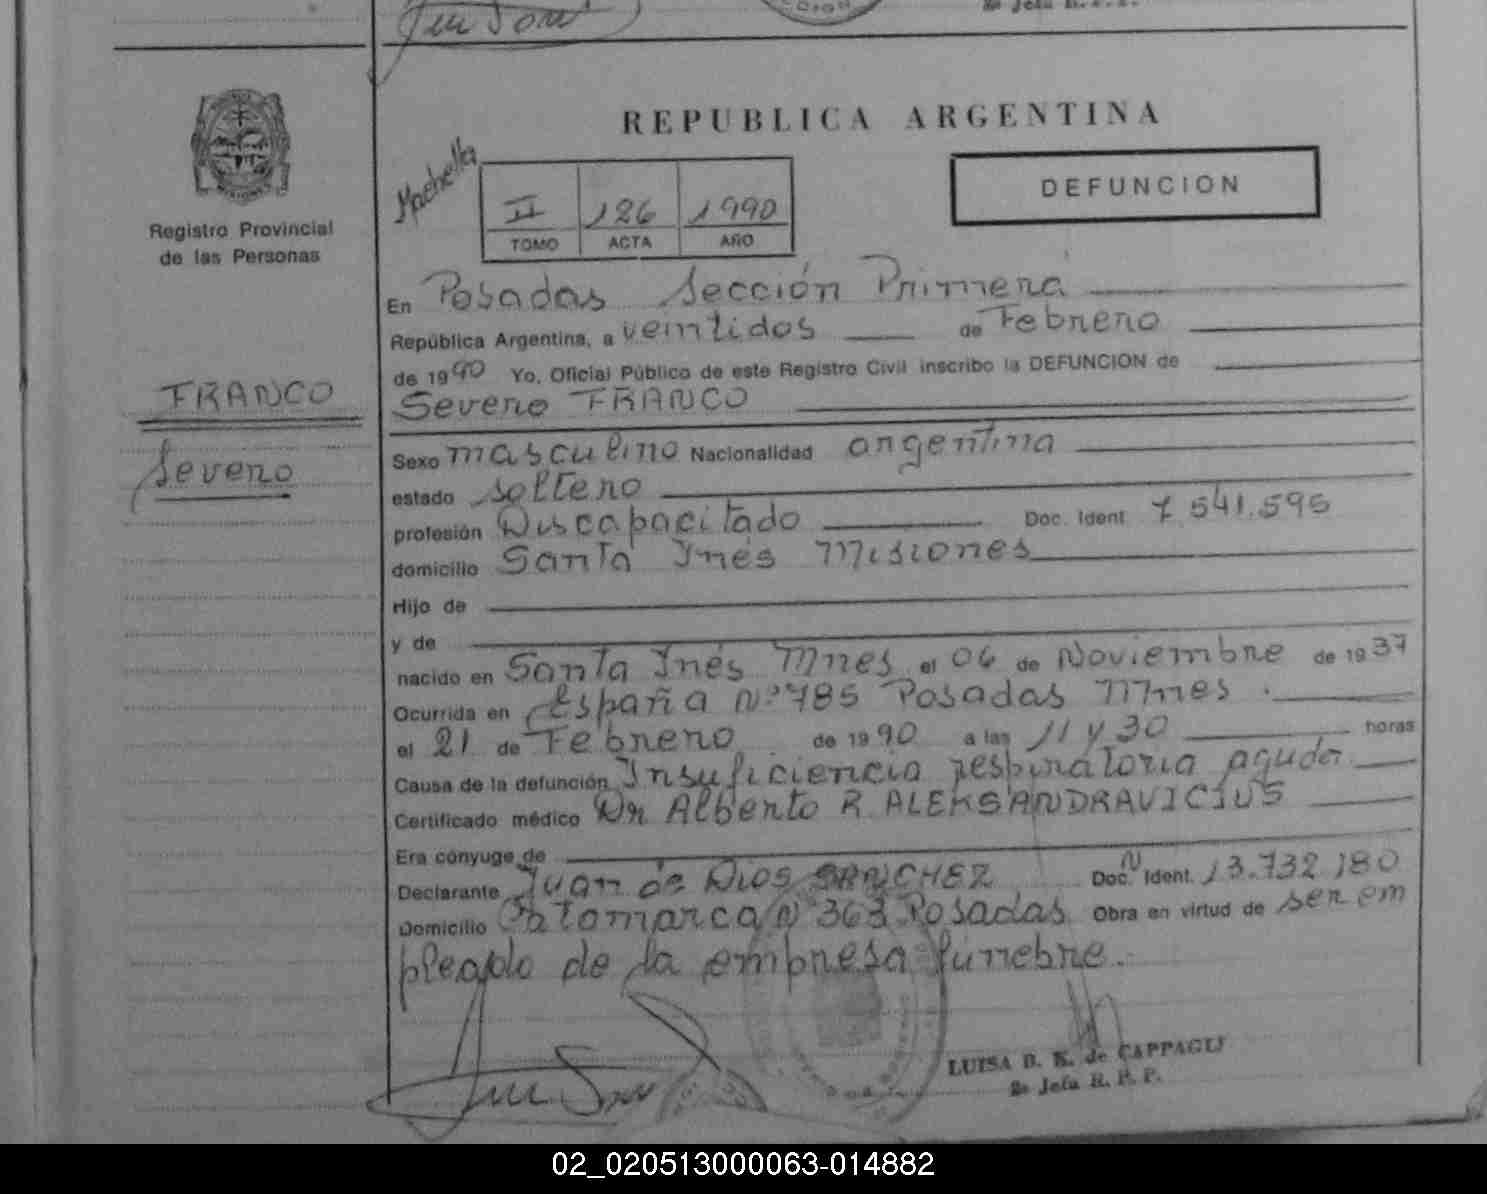 REPUBLICA ARGENTINA
DEFUNCION
II 126 1990
TOMO ACTA AÑO
Registro Provincial
de las Personas
FRANCO
Severo
En Posadas Sección Primera
República Argentina, a veintidos de Febrero
de 1990 Yo, Oficial Público de este Registro Civil inscribo la DEFUNCION de
Severo FRANCO
Sexo masculino Nacionalidad argentina
estado soltero
profesión Discapacitado Doc. Ident 7.541.595
domicilio Santa Inés Misiones
Hijo de
y de
nacido en Santa Inés Mnes el 06 de Noviembre de 1937
Ocurrida en España Nº 785 Posadas Mnes.
el 21 de Febrero de 1990 a las 11 y 30 horas
Causa de la defunción Insuficiencia respiratoria aguda
Certificado médico Dr Alberto R. ALEKSANDRAVICIUS
Era cónyuge de
Declarante Juan de Dios SANCHEZ Doc. N Ident. 13.732.180
Domicilio Catamarca Nº 363 Posadas Obra en virtud de ser em
pleado de la empresa fúnebre.
LUISA B. K. de CAPPAGLI
2º Jefa R. P. P.
02_020513000063-014882